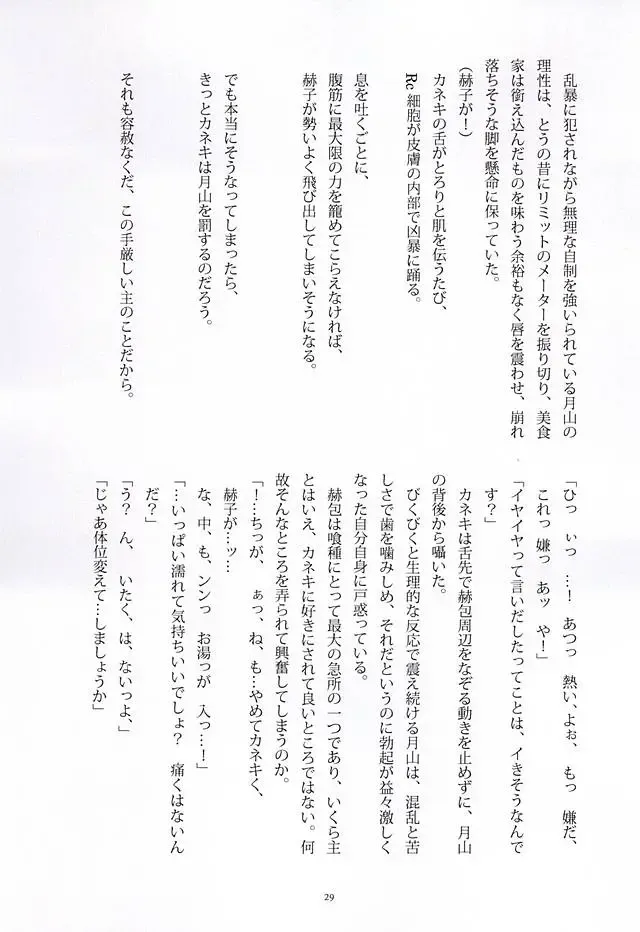 乱暴に犯されながら無理な自制を強いられている月山の
理性は、とうの昔にリミットのメーターを振り切り、美食
家は銜え込んだものを味わう余裕もなく唇を震わせ、崩れ
落ちそうな脚を懸命に保っていた。
(赫子が!)
カネキの舌がとろりと肌を伝うたび、
Rc細胞が皮膚の内部で凶暴に踊る。
息を吐くごとに、
腹筋に最大限の力を籠めてこらえなければ、
赫子が勢いよく飛び出してしまいそうになる。
でも本当にそうなってしまったら、
きっとカネキは月山を罰するのだろう。
それも容赦なくだ、この手厳しい主のことだから。
「ひっ　ぃっ　…!　あつっ　熱い、よぉ、　もっ　嫌だ、
これっ　嫌っ　あッ　や!」
「イヤイヤって言いだしたってことは、イきそうなんで
す?」
カネキは舌先で赫包周辺をなぞる動きを止めずに、月山
の背後から囁いた。
びくびくと生理的な反応で震え続ける月山は、混乱と苦
しさで歯を噛みしめ、それだというのに勃起が益々激しく
なった自分自身に戸惑っている。
赫包は喰種にとって最大の急所の一つであり、いくら主
とはいえ、カネキに好きにされて良いところではない。何
故そんなところを弄られて興奮してしまうのか。
「!…ちっが、　ぁっ、ね、も…やめてカネキく、
赫子が…ッ…
な、中、も、ンンっ　お湯っが　入っ…!」
「…いっぱい濡れて気持ちいいでしょ?　痛くはないん
だ?」
「う?　ん、　いたく、は、ないっよ、」
「じゃあ体位変えて…しましょうか」
29